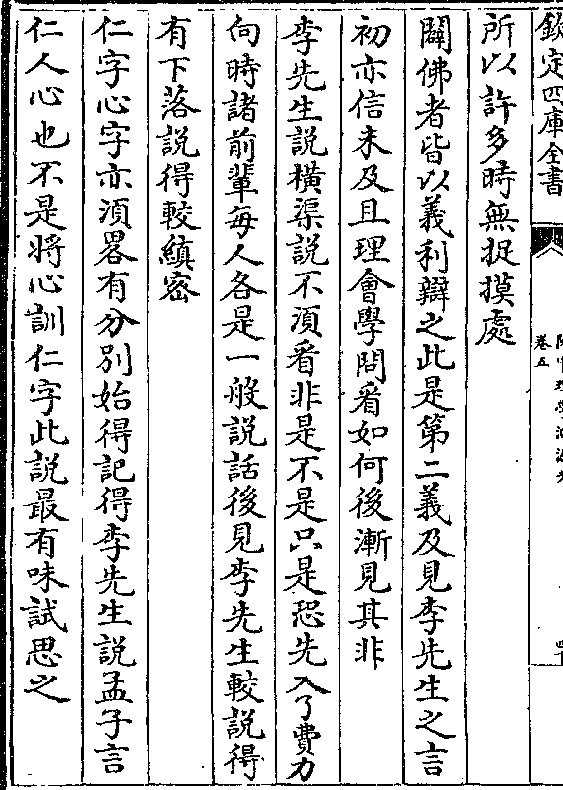 欽定四庫全書
卷五
所以許多時無捉摸處
闢佛者皆以義利辯之此是第二義及見李先生之言
初亦信未及且理會學問看如何後漸見其非
李先生說橫渠說不湏看非是不是只是恐先入了費力
向時諸前輩每人各是一般說話後見李先生較說得
有下落說得較縝密
仁字心字亦湏畧有分別始得記得李先生說孟子言
仁人心也不是將心訓仁字此說最有味試思之